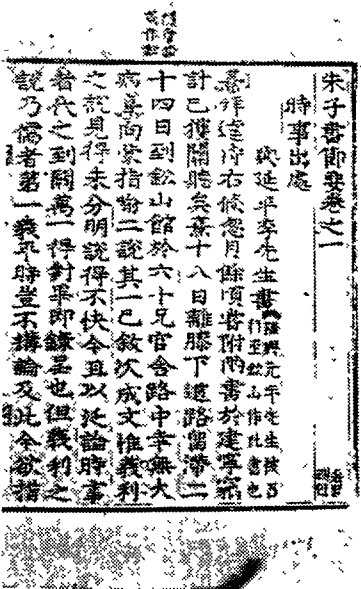 朱子書節要卷之一
時事出處
與延平李先生書
隆興元年先生被召
行至鉛山作此書也
熹拜違侍右倏忽月餘頃嘗附兩書於建寧竊
計已獲關聽矣熹十八日離膝下道路留滯二
十四日到鈆山館於六十兄官舍路中幸無大
病熹向蒙指喻二說其一已敘次成文惟義利
之說見得未分明說得不快今且以泛論時事
者代之到闕萬一得對畢即錄呈也但義利之
說乃儒者第一義平時豈不講論及此今欲措